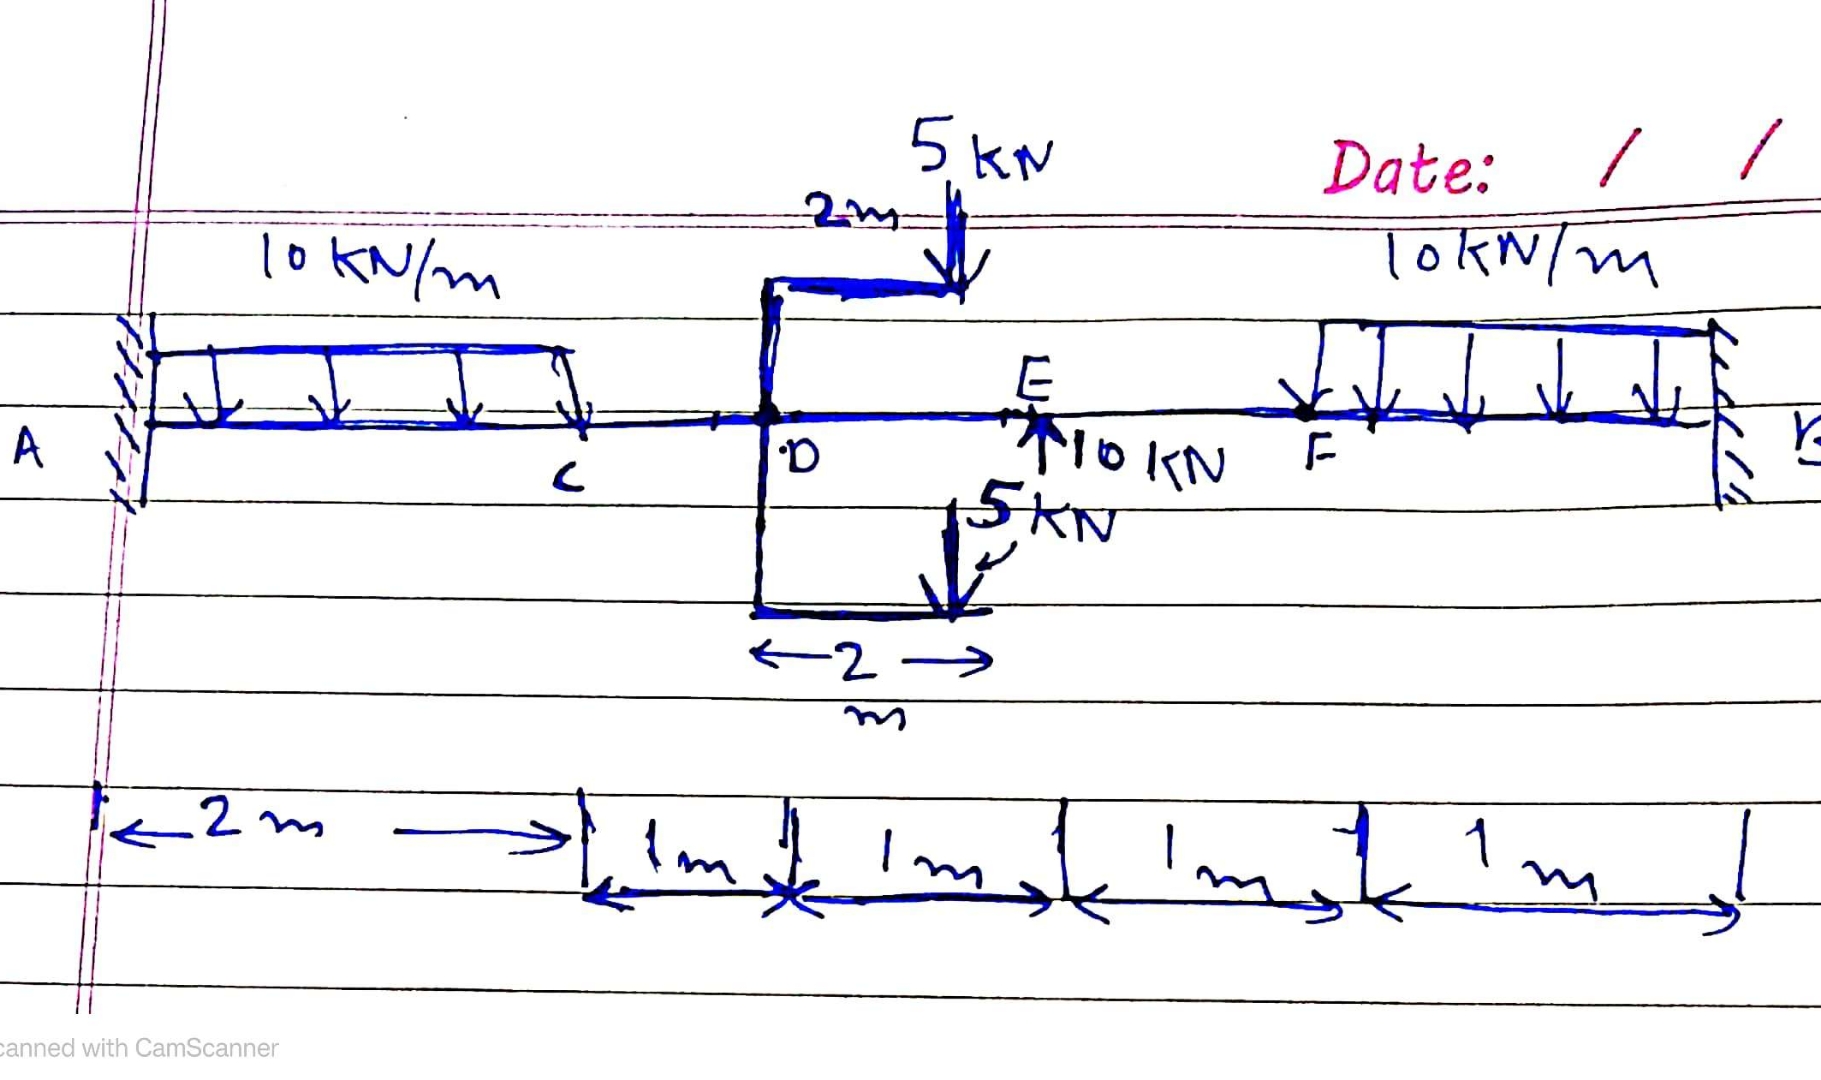 5 KN
Date: / /
2m
10 KN/m
10 KN/m
E
A
C
D
10 KN
F
5 KN
2
m
2 m
1m
1m
1m
1m
canned with CamScanner